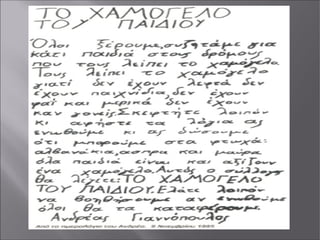 ΤΟ ΧΑΜΟΓΕΛΟ
ΤΟΥ ΠΑΙΔΙΟΥ
Όλοι ξέρουμε, συζητάμε για
κάτι παιδιά στους δρόμους
που τους λείπει το χαμόγελο
Τους λείπει το χαμόγελο
γιατί δεν έχουν λεφτά δεν
έχουν παιχνίδια, δεν έχουν
φαΐ και μερικά δεν έχουν
καν γονείς. Σκεφτήτε λοιπόν
κι αφήστε τα λόγια ας
ενωθούμε κι ας δώσουμε
ότι μπορούμε στα φτωχά:
αλβανάκια, άσπρα και μαύρα
όλα παιδιά είναι και αξίζουν
ένα χαμόγελο. Αυτός ο σύλλογος
θα λέγετε: ΤΟ ΧΑΜΟΓΕΛΟ
ΤΟΥ ΠΑΙΔΙΟΥ. Ελάτε λοιπόν
να βοηθήσουμε αν ενωθούμε
όλοι θα τα καταφέρουμε.
Ανδρέας Γιαννόπουλος
Από το ημερολόγιο του Ανδρέα. 9 Νοεμβρίου 1995